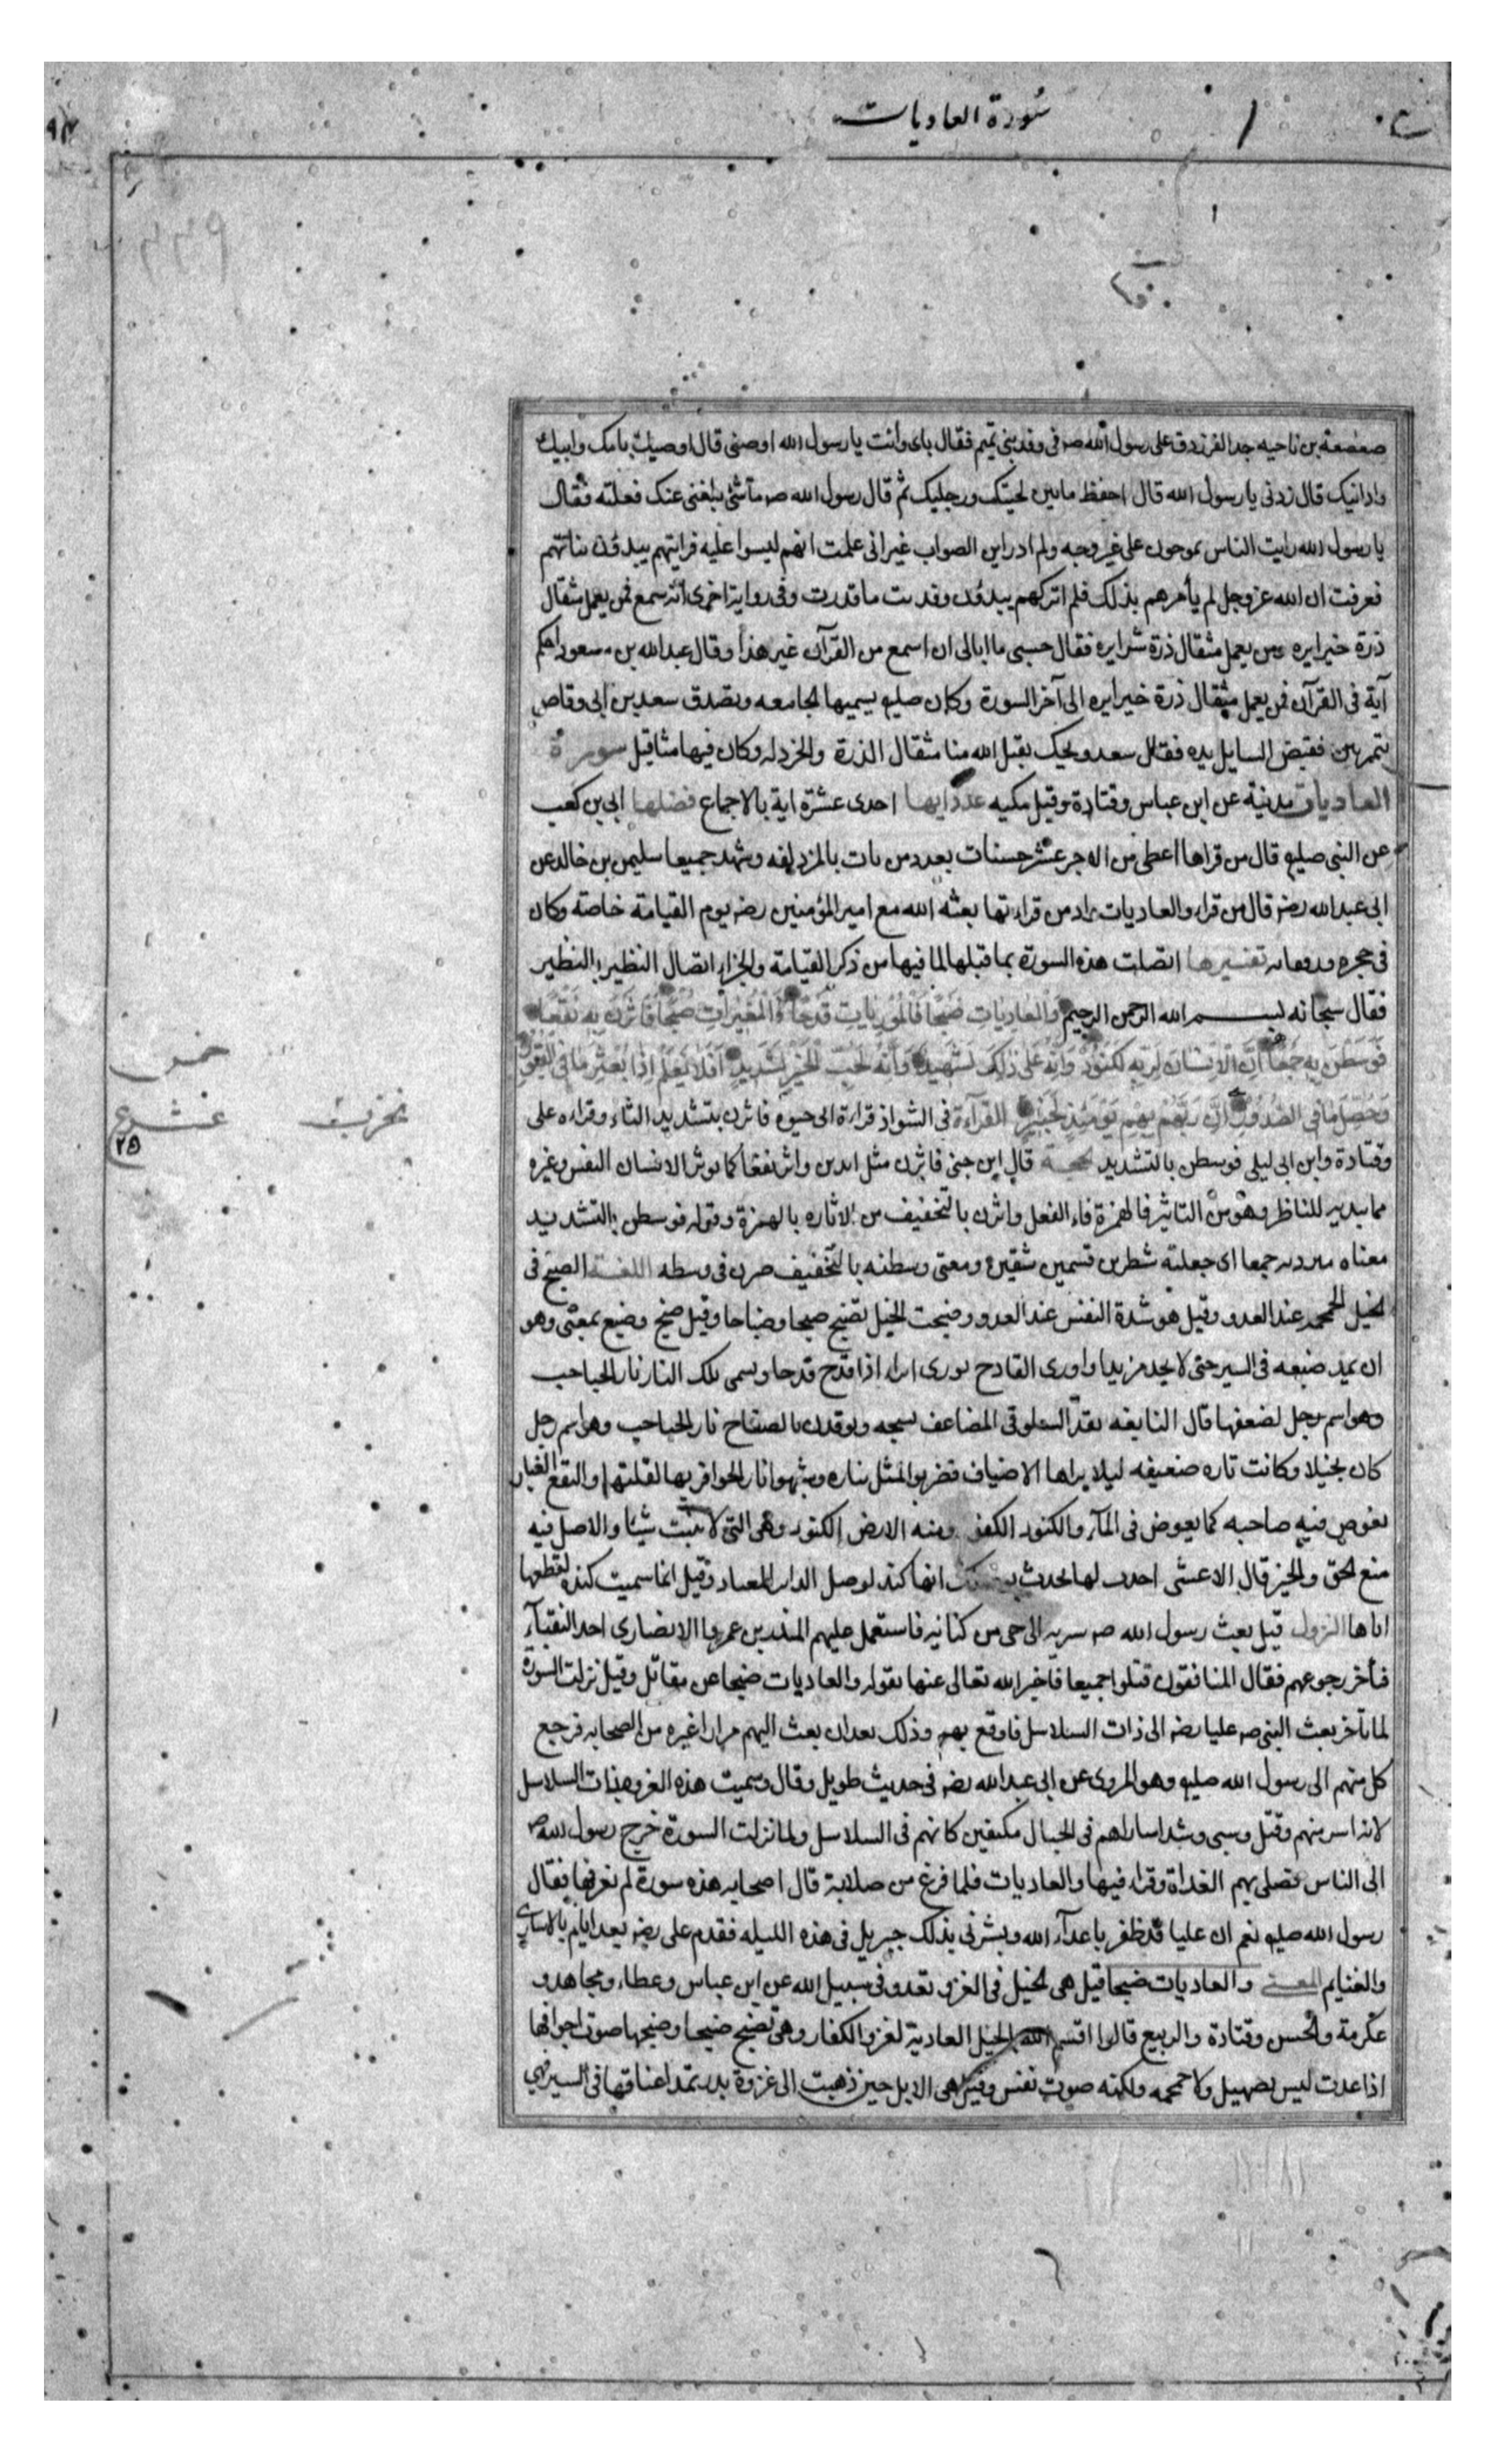 سورة العاديات
صعصعة بن ناحيه جد الفرزدق على رسول الله صه فى وفد بنى تميم فقال بابى وانت يا رسول الله اوصنى قال اوصيك بامك وابيك
وادانيك قال زدنى يا رسول الله قال احفظ ما بين لحيتك ورجليك ثم قال رسول الله صه ما شئ بلغنى عنك فعلته فقال
يا رسول الله رايت الناس يموجون على غير وجه ولم ادر اين الصواب غير انى علمت انهم ليسوا عليه فرايتهم يبدؤن بناتهم
فعرفت ان الله عز وجل لم يأمرهم بذلك فلم اتركهم يبدؤن وفديت ما قدرت وفى رواية اخرى انه سمع فمن يعمل مثقال
ذرة خيرا يره ومن يعمل مثقال ذرة شرا يره فقال حسبى ما ابالى ان اسمع من القرآن غير هذا وقال عبد الله بن مسعود احكم
آية فى القرآن فمن يعمل مثقال ذرة خيرا يره الى آخر السورة وكان صليه يسميها الجامعه وتصدق سعد بن ابى وقاص
بتمرتين فقبض السايل يده فقال سعد ويحك يقبل الله منا مثقال الذرة والخردله وكان فيها مثاقيل سورة
العاديات مدنية عن ابن عباس وقتادة وقيل مكيه عدد ايها احدى عشرة اية بالاجماع فضلها ابى بن كعب
عن النبى صليه قال من قراها اعطى من الاجر عشر حسنات بعدد من بات بالمزدلفه وشهد جميعا سليمن بن خالد عن
ابى عبد الله رضه قال من قراء والعاديات وادمن قراءتها بعثه الله مع امير المؤمنين رضه يوم القيامة خاصة وكان
فى حجره ورفقايه تفسيرها اتصلت هذه السورة بما قبلها لما فيها من ذكر القيامة والجزاء اتصال النظير بالنظير
فقال سبحانه بسم الله الرحمن الرحيم وَالْعَادِيَاتِ ضَبْحًا فَالْمُورِيَاتِ قَدْحًا فَالْمُغِيرَاتِ صُبْحًا فَأَثَرْنَ بِهِ نَقْعًا
فَوَسَطْنَ بِهِ جَمْعًا اِنَّ الْاِنْسَانَ لِرَبِّهِ لَكَنُودٌ وَاِنَّهُ عَلَى ذَلِكَ لَشَهِيدٌ وَاِنَّهُ لِحُبِّ الْخَيْرِ لَشَدِيدٌ اَفَلَا يَعْلَمُ اِذَا بُعْثِرَ مَا فِى الْقُبُورِ
وَحُصِّلَ مَا فِى الصُّدُورِ اِنَّ رَبَّهُمْ بِهِمْ يَوْمَئِذٍ لَخَبِيرٌ القرآءة فى الشواذ قراءة ابى حيوه فاثرن بتشديد الثاء وقراءه على
وقتادة وابن ابى ليلى فوسطن بالتشديد الحجة قال ابن جنى فاثرن مثل ابدين واثر نقعا كما يوثر الانسان النفس وغيره
مما يبديه للناظر وهو من التاثير فالهمزة فاء الفعل واثرن بالتخفيف من الاثاره بالهمزة وقوله فوسطن بالتشديد
معناه ميزن به جمعا اى جعلته شطرين قسمين شقين ومعنى وسطنه بالتخفيف صرن فى وسطه اللغة الضبح فى
الخيل الحمحمه عند العدو وقيل هو شدة النفس عند العدو وضبحت الخيل تضبح ضبحا وضباحا وقيل ضبح وضبع بمعنى وهو
ان يمد ضبعه فى السير حتى لا يجد مزيدا واورى القادح يورى ايراء اذا قدح قدحا ويسمى تلك النار نار الحباحب
وهو اسم رجل لضعفها قال النابغه تقد السلوقى المضاعف نسجه ويوقدن بالصفاح نار الحباحب وهو اسم رجل
كان بخيلا وكانت ناره ضعيفه ليلا يراها الاضياف فضربوا المثل بناره وشبهوا نار الحوافر بها لقلتها والنقع الغبار
يغوص فيه صاحبه كما يغوص فى المآء والكنود الكفور ومنه الارض الكنود وهى التى لا تنبت شيئا والاصل فيه
منع الحق والخير قال الاعشى احدث لها تحدث لوصلك انها كند لوصل الزاير المعتاد وقيل انما سميت كنده لقطعها
اباها النزول قيل بعث رسول الله صه سريه الى حى من كنانه فاستعمل عليهم المنذر بن عمروا الانصارى احد النقبآء
فتأخر رجوعهم فقال المنافقون قتلوا جميعا فاخبر الله تعالى عنها بقوله والعاديات ضبحا عن مقاتل وقيل نزلت السورة
لما تآخر بعث النبى صه عليا رضه الى ذات السلاسل فاوقع بهم وذلك بعد ان بعث اليهم مرارا غيره من الصحابه فرجع
كل منهم الى رسول الله صليه وهو المروى عن ابى عبد الله رضه فى حديث طويل وقال وسميت هذه الغزوه ذات السلاسل
لانه اسر منهم وقتل وسبى وشد اساراهم فى الحبال مكتفين كانهم فى السلاسل ولما نزلت السورة خرج رسول الله صه
الى الناس فصلى بهم الغداة وقراء فيها والعاديات فلما فرغ من صلاته قال اصحابه هذه سورة لم نعرفها فقال
رسول الله صليه نعم ان عليا قد ظفر باعدآء الله وبشرنى بذلك جبريل فى هذه الليله فقدم على رضه بعد ايام بالاسارى
والغنايم المعنى والعاديات ضبحا قيل هى الخيل فى الغزو تعدو فى سبيل الله عن ابن عباس وعطاء ومجاهد و
عكرمة والحسن وقتادة والربيع قالوا اقسم الله بالخيل العادية لغزو الكفار وهى تضبح ضبحا وضبحها صوت اجوافها
اذا عدت ليس بصهيل ولا حمحمه ولكنه صوت نفس وقيل هى الابل حين ذهبت الى غزوة بدر تمد اعناقها فى السير فهى
عشر
٢٥